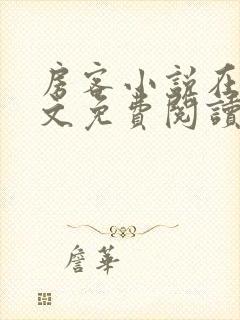 房客小說在
文免費閱讀
詹華